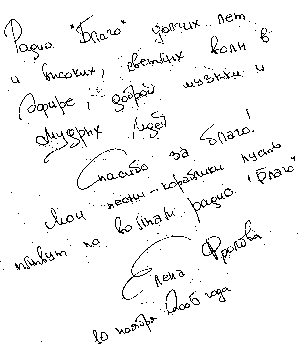 Радио "Благо" долгих лет
и высоких, светлых волн в
эфире, доброй музыки и
мудрых идей
Спасибо за Благо!
Мои песни-кораблики пусть
плывут по волнам радио "Благо"
Елена Фролова
10 ноября 2006 года